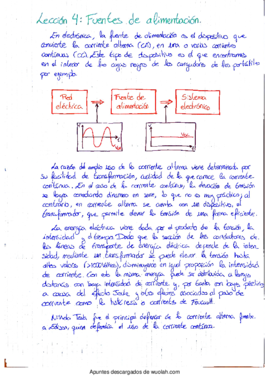 Lección 4: Fuentes de alimentación.
En electrónica, la fuente de alimentación es el dispositivo que
convierte la corriente alterna (CA), en una o varias corrientes
continuas (CC). Este tipo de dispositivo es el que encontramos
en el interior de las cajas negras de los cargadores de los portátiles
por ejemplo.
Red eléctrica
Fuente de alimentación
Sistema electrónico
La razón del amplio uso de la corriente alterna viene determinada por
su facilidad de transformación, cualidad de la que carece la corriente
continua. En el caso de la corriente continua, la elevación de tensión
se logra conectando dinamos en serie, lo que no es muy práctico; al
contrario, en corriente alterna se cuenta con un dispositivo, el
transformador, que permite elevar la tensión de una forma eficiente.
La energía eléctrica viene dada por el producto de la tensión, la
intensidad y el tiempo. Dado que la sección de los conductores de
las líneas de transporte de energía eléctrica depende de la inten-
sidad, mediante un transformador se puede elevar la tensión hasta
altos valores, disminuyendo en igual proporción la intensidad
de corriente. Con esto la misma energía puede ser distribuida a largas
distancias con bajas intensidades de corriente y, por tanto, con bajas pérdidas
a causa del efecto Joule y otros efectos asociados al paso de
corriente como la histéresis o corrientes de Foucault.
Nikola Tesla fue el principal defensor de la corriente alterna, frente
a Edison, quien defendía el uso de la corriente continua.
Apuntes descargados de wuolah.com